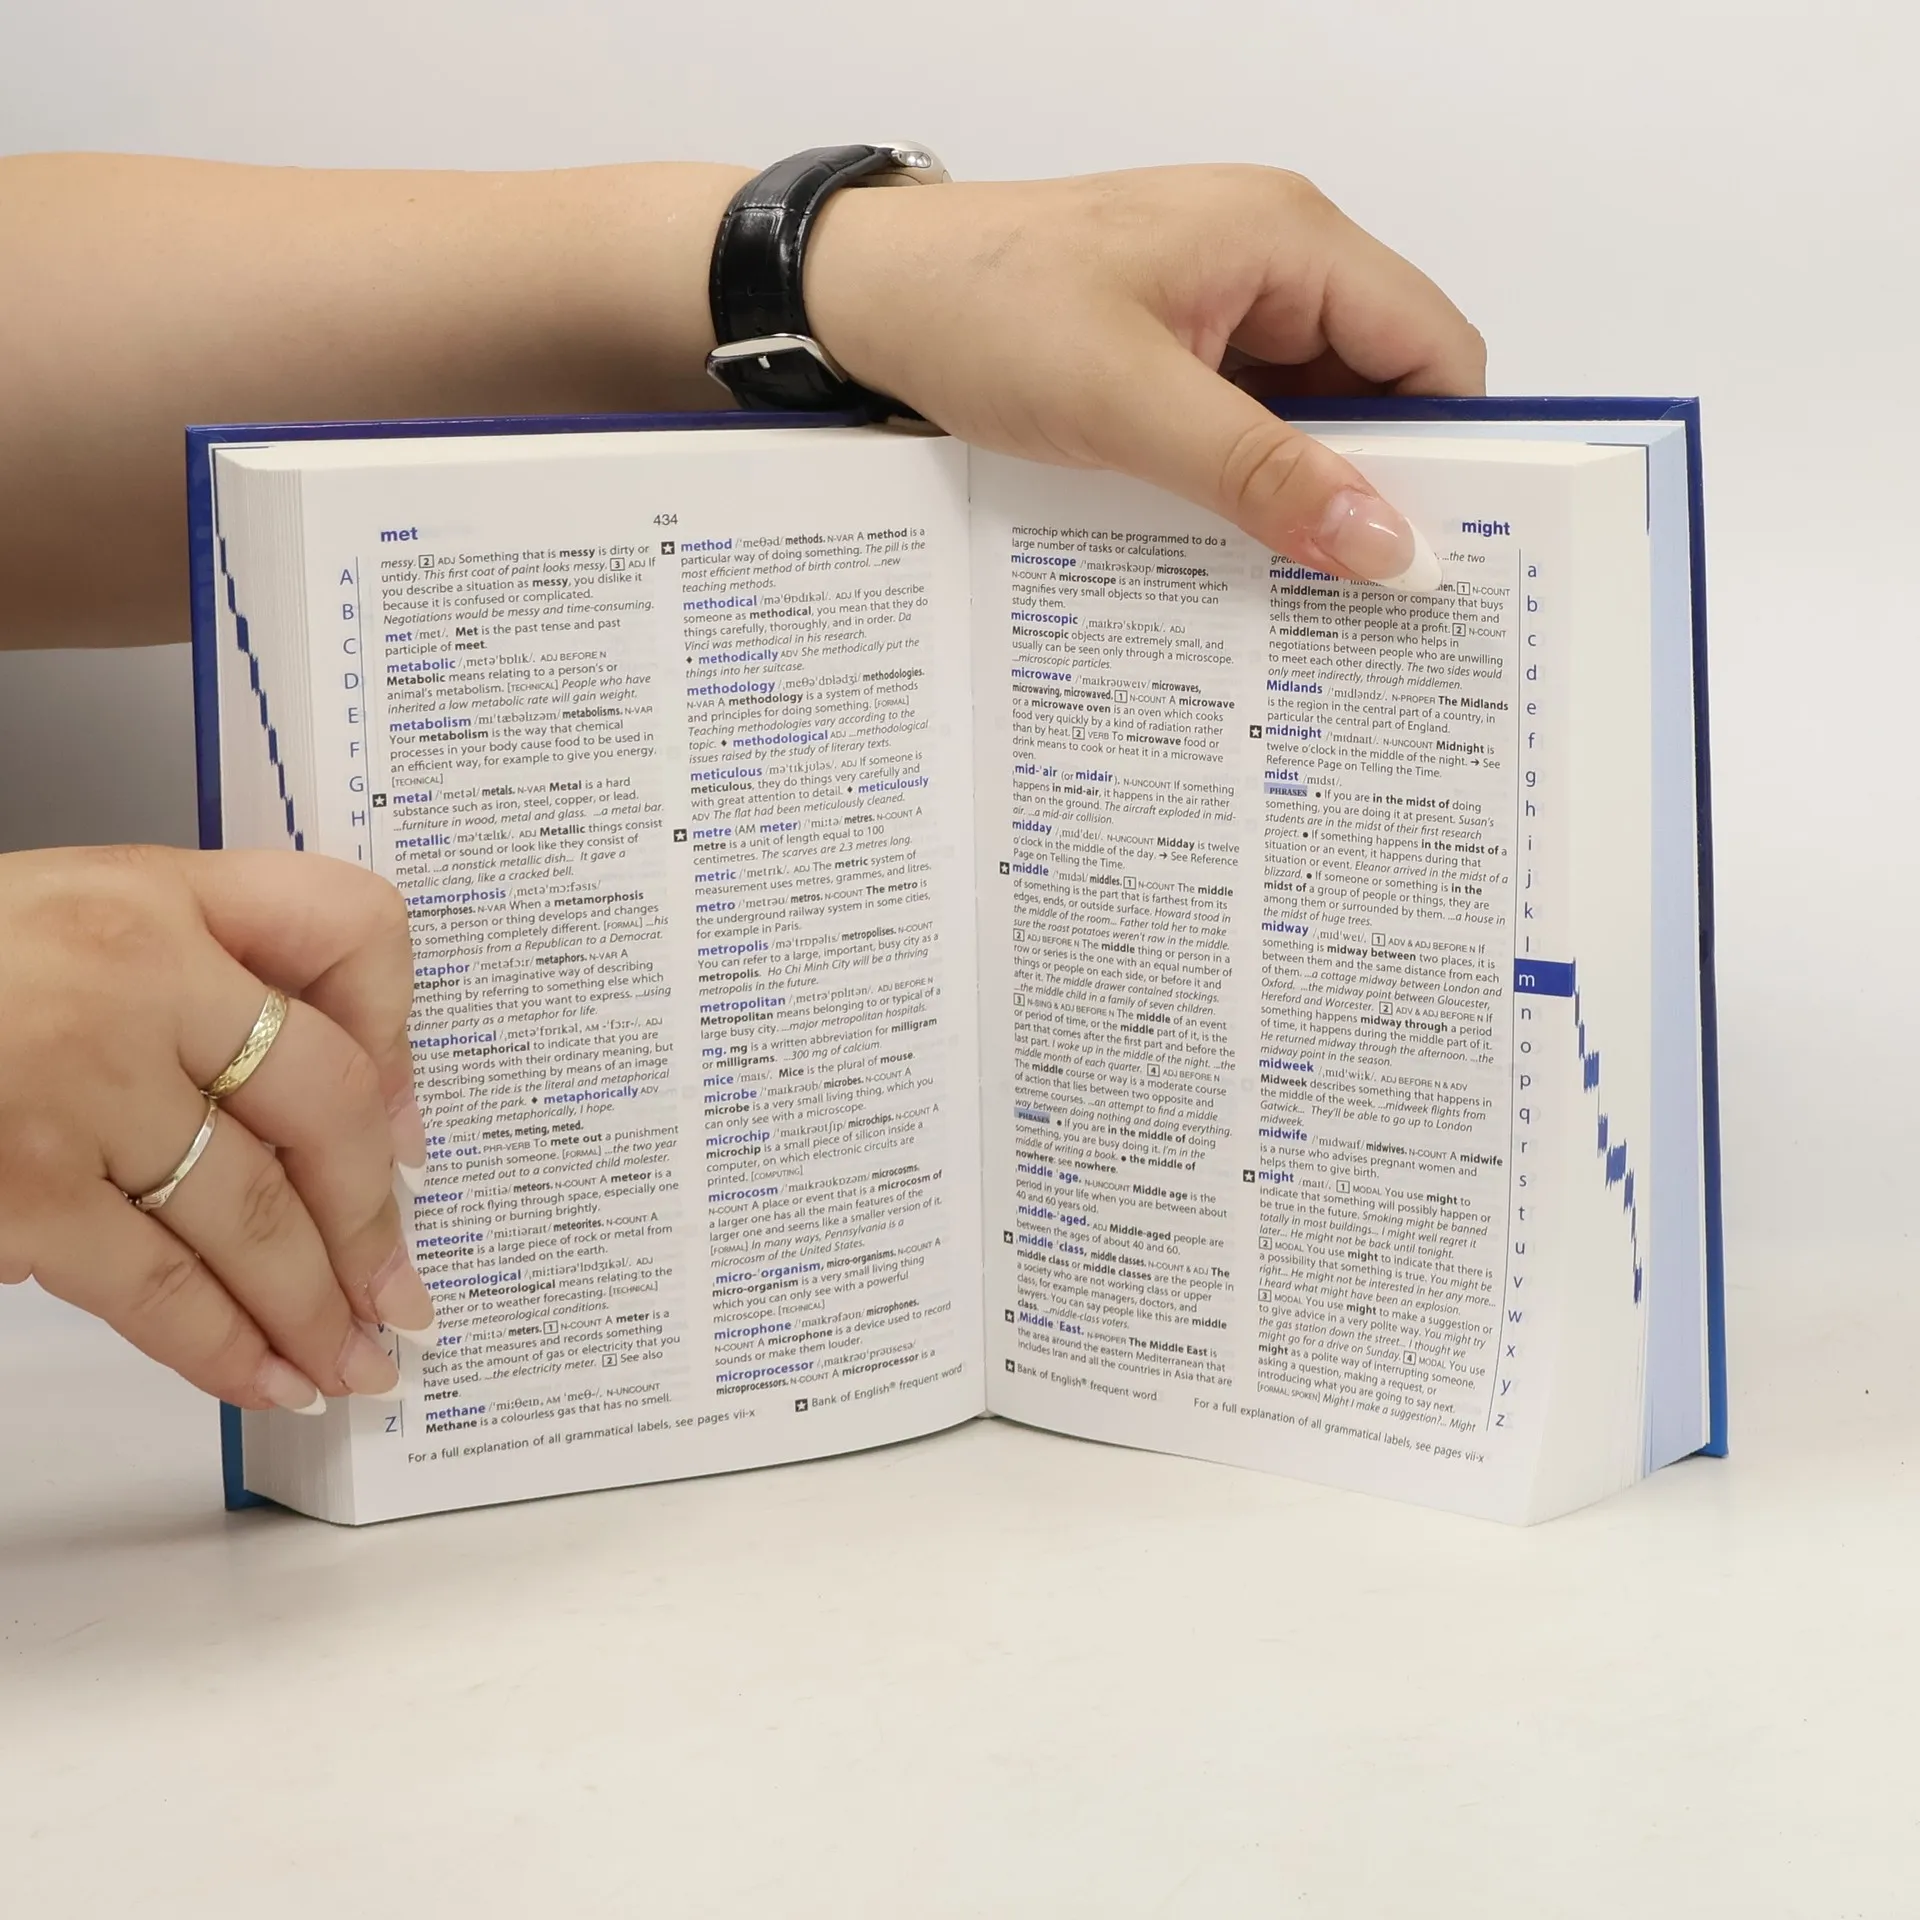 met
434
messy. 2 ADJ Something that is messy is dirty or
untidy. This first coat of paint looks messy. 3 ADJ If
you describe a situation as messy, you dislike it
because it is confused or complicated.
Negotiations would be messy and time-consuming.
met /met/. Met is the past tense and past
participle of meet.
metabolic /ˌmetəˈbɒlɪk/. ADJ BEFORE N
Metabolic means relating to a person's or
animal's metabolism. [TECHNICAL] People who have
inherited a low metabolic rate will gain weight.
metabolism /mɪˈtæbəlɪzəm/ metabolisms. N-VAR
Your metabolism is the way that chemical
processes in your body cause food to be used in
an efficient way, for example to give you energy.
[TECHNICAL]
metal /ˈmetəl/ metals. N-VAR Metal is a hard
substance such as iron, steel, copper, or lead.
...furniture in wood, metal and glass. ...a metal bar.
metallic /məˈtælɪk/. ADJ Metallic things consist
of metal or sound or look like they consist of
metal. ...a nonstick metallic dish... It gave a
metallic clang, like a cracked bell.
/ˌmetəˈmɔːfəsɪs/
N-VAR When a metamorphosis
a person or thing develops and changes
to something completely different. [FORMAL] ...his
from a Republican to a Democrat.
/ˈmetəfɔːr/ metaphors. N-VAR A
is an imaginative way of describing
by referring to something else which
as the qualities that you want to express. ...using
dinner party as a metaphor for life.
metaphorical /ˌmetəˈfɒrɪkəl, AM -ˈfɔːr-/. ADJ
use metaphorical to indicate that you are
words with their ordinary meaning, but
describing something by means of an image
symbol. The ride is the literal and metaphorical
point of the park. ♦ metaphorically ADV
speaking metaphorically, I hope.
/miːt/ metes, meting, meted.
out. PHR-VERB To mete out a punishment
to punish someone. [FORMAL] ...the two year
meted out to a convicted child molester.
meteor /ˈmiːtiə/ meteors. N-COUNT A meteor is a
piece of rock flying through space, especially one
that is shining or burning brightly.
meteorite /ˈmiːtiəraɪt/ meteorites. N-COUNT A
meteorite is a large piece of rock or metal from
space that has landed on the earth.
meteorological /ˌmiːtiərəˈlɒdʒɪkəl/. ADJ
N Meteorological means relating to the
or to weather forecasting. [TECHNICAL]
meteorological conditions.
/ˈmiːtə/ meters. 1 N-COUNT A meter is a
device that measures and records something
such as the amount of gas or electricity that you
have used. ...the electricity meter. 2 See also
metre.
methane /ˈmiːθeɪn, AM ˈmeθ-/. N-UNCOUNT
Methane is a colourless gas that has no smell.
A
B
C
D
E
F
G
H
I
Z
method /ˈmeθəd/ methods. N-VAR A method is a
particular way of doing something. The pill is the
most efficient method of birth control. ...new
teaching methods.
methodical /məˈθɒdɪkəl/. ADJ If you describe
someone as methodical, you mean that they do
things carefully, thoroughly, and in order. Da
Vinci was methodical in his research.
♦ methodically ADV She methodically put the
things into her suitcase.
methodology /ˌmeθəˈdɒlədʒi/ methodologies.
N-VAR A methodology is a system of methods
and principles for doing something. [FORMAL]
Teaching methodologies vary according to the
topic. ♦ methodological ADJ ...methodological
issues raised by the study of literary texts.
meticulous /məˈtɪkjʊləs/. ADJ If someone is
meticulous, they do things very carefully and
with great attention to detail. ♦ meticulously
ADV The flat had been meticulously cleaned.
metre (AM meter) /ˈmiːtə/ metres. N-COUNT A
metre is a unit of length equal to 100
centimetres. The scarves are 2.3 metres long.
metric /ˈmetrɪk/. ADJ The metric system of
measurement uses metres, grammes, and litres.
metro /ˈmetrəʊ/ metros. N-COUNT The metro is
the underground railway system in some cities,
for example in Paris.
metropolis /məˈtrɒpəlɪs/ metropolises. N-COUNT
You can refer to a large, important, busy city as a
metropolis. Ho Chi Minh City will be a thriving
metropolis in the future.
metropolitan /ˌmetrəˈpɒlɪtən/. ADJ BEFORE N
Metropolitan means belonging to or typical of a
large busy city. ...major metropolitan hospitals.
mg. mg is a written abbreviation for milligram
or milligrams. ...300 mg of calcium.
mice /maɪs/. Mice is the plural of mouse.
microbe /ˈmaɪkrəʊb/ microbes. N-COUNT A
microbe is a very small living thing, which you
can only see with a microscope.
microchip /ˈmaɪkrəʊtʃɪp/ microchips. N-COUNT A
microchip is a small piece of silicon inside a
computer, on which electronic circuits are
printed. [COMPUTING]
microcosm /ˈmaɪkrəʊkɒzəm/ microcosms.
N-COUNT A place or event that is a microcosm of
a larger one has all the main features of the
larger one and seems like a smaller version of it.
[FORMAL] In many ways, Pennsylvania is a
microcosm of the United States.
ˌmicro-ˈorganism, micro-organisms. N-COUNT A
micro-organism is a very small living thing
which you can only see with a powerful
microscope. [TECHNICAL]
microphone /ˈmaɪkrəfəʊn/ microphones.
N-COUNT A microphone is a device used to record
sounds or make them louder.
microprocessor /ˌmaɪkrəʊˈprəʊsesə/
microprocessors. N-COUNT A microprocessor is a
Bank of English® frequent word
For a full explanation of all grammatical labels, see pages vii-x
might
microchip which can be programmed to do a
large number of tasks or calculations.
microscope /ˈmaɪkrəskəʊp/ microscopes.
N-COUNT A microscope is an instrument which
magnifies very small objects so that you can
study them.
microscopic /ˌmaɪkrəˈskɒpɪk/. ADJ
Microscopic objects are extremely small, and
usually can be seen only through a microscope.
...microscopic particles.
microwave /ˈmaɪkrəʊweɪv/ microwaves,
microwaving, microwaved. 1 N-COUNT A microwave
or a microwave oven is an oven which cooks
food very quickly by a kind of radiation rather
than by heat. 2 VERB To microwave food or
drink means to cook or heat it in a microwave
oven.
ˌmid-ˈair (or midair). N-UNCOUNT If something
happens in mid-air, it happens in the air rather
than on the ground. The aircraft exploded in mid-
air. ...a mid-air collision.
midday /ˌmɪdˈdeɪ/. N-UNCOUNT Midday is twelve
o'clock in the middle of the day. → See Reference
Page on Telling the Time.
middle /ˈmɪdəl/ middles. 1 N-COUNT The middle
of something is the part that is farthest from its
edges, ends, or outside surface. Howard stood in
the middle of the room... Father told her to make
sure the roast potatoes weren't raw in the middle.
2 ADJ BEFORE N The middle thing or person in a
row or series is the one with an equal number of
things or people on each side, or before it and
after it. The middle drawer contained stockings.
...the middle child in a family of seven children.
3 N-SING & ADJ BEFORE N The middle of an event
or period of time, or the middle part of it, is the
part that comes after the first part and before the
last part. I woke up in the middle of the night. ...the
middle month of each quarter. 4 ADJ BEFORE N
The middle course or way is a moderate course
of action that lies between two opposite and
extreme courses. ...an attempt to find a middle
way between doing nothing and doing everything.
PHRASES • If you are in the middle of doing
something, you are busy doing it. I'm in the
middle of writing a book. • the middle of
nowhere: see nowhere.
ˌmiddle ˈage. N-UNCOUNT Middle age is the
period in your life when you are between about
40 and 60 years old.
ˌmiddle-ˈaged. ADJ Middle-aged people are
between the ages of about 40 and 60.
ˌmiddle ˈclass, middle classes. N-COUNT & ADJ The
middle class or middle classes are the people in
a society who are not working class or upper
class, for example managers, doctors, and
lawyers. You can say people like this are middle
class. ...middle-class voters.
ˌMiddle ˈEast. N-PROPER The Middle East is
the area around the eastern Mediterranean that
includes Iran and all the countries in Asia that are
Bank of English® frequent word
...the two
middleman 1 N-COUNT
A middleman is a person or company that buys
things from the people who produce them and
sells them to other people at a profit. 2 N-COUNT
A middleman is a person who helps in
negotiations between people who are unwilling
to meet each other directly. The two sides would
only meet indirectly, through middlemen.
Midlands /ˈmɪdləndz/. N-PROPER The Midlands
is the region in the central part of a country, in
particular the central part of England.
midnight /ˈmɪdnaɪt/. N-UNCOUNT Midnight is
twelve o'clock in the middle of the night. → See
Reference Page on Telling the Time.
midst /mɪdst/.
PHRASES • If you are in the midst of doing
something, you are doing it at present. Susan's
students are in the midst of their first research
project. • If something happens in the midst of a
situation or an event, it happens during that
situation or event. Eleanor arrived in the midst of a
blizzard. • If someone or something is in the
midst of a group of people or things, they are
among them or surrounded by them. ...a house in
the midst of huge trees.
midway /ˌmɪdˈweɪ/. 1 ADV & ADJ BEFORE N If
something is midway between two places, it is
between them and the same distance from each
of them. ...a cottage midway between London and
Oxford. ...the midway point between Gloucester,
Hereford and Worcester. 2 ADV & ADJ BEFORE N If
something happens midway through a period
of time, it happens during the middle part of it.
He returned midway through the afternoon. ...the
midway point in the season.
midweek /ˌmɪdˈwiːk/. ADJ BEFORE N & ADV
Midweek describes something that happens in
the middle of the week. ...midweek flights from
Gatwick... They'll be able to go up to London
midweek.
midwife /ˈmɪdwaɪf/ midwives. N-COUNT A midwife
is a nurse who advises pregnant women and
helps them to give birth.
might /maɪt/. 1 MODAL You use might to
indicate that something will possibly happen or
be true in the future. Smoking might be banned
totally in most buildings... I might well regret it
later... He might not be back until tonight.
2 MODAL You use might to indicate that there is
a possibility that something is true. You might be
right... He might not be interested in her any more...
I heard what might have been an explosion.
3 MODAL You use might to make a suggestion or
to give advice in a very polite way. You might try
the gas station down the street... I thought we
might go for a drive on Sunday. 4 MODAL You use
might as a polite way of interrupting someone,
asking a question, making a request, or
introducing what you are going to say next.
[FORMAL, SPOKEN] Might I make a suggestion?... Might
For a full explanation of all grammatical labels, see pages vii-x
a
b
c
d
e
f
g
h
i
j
k
l
m
n
o
p
q
r
s
t
u
v
w
x
y
z